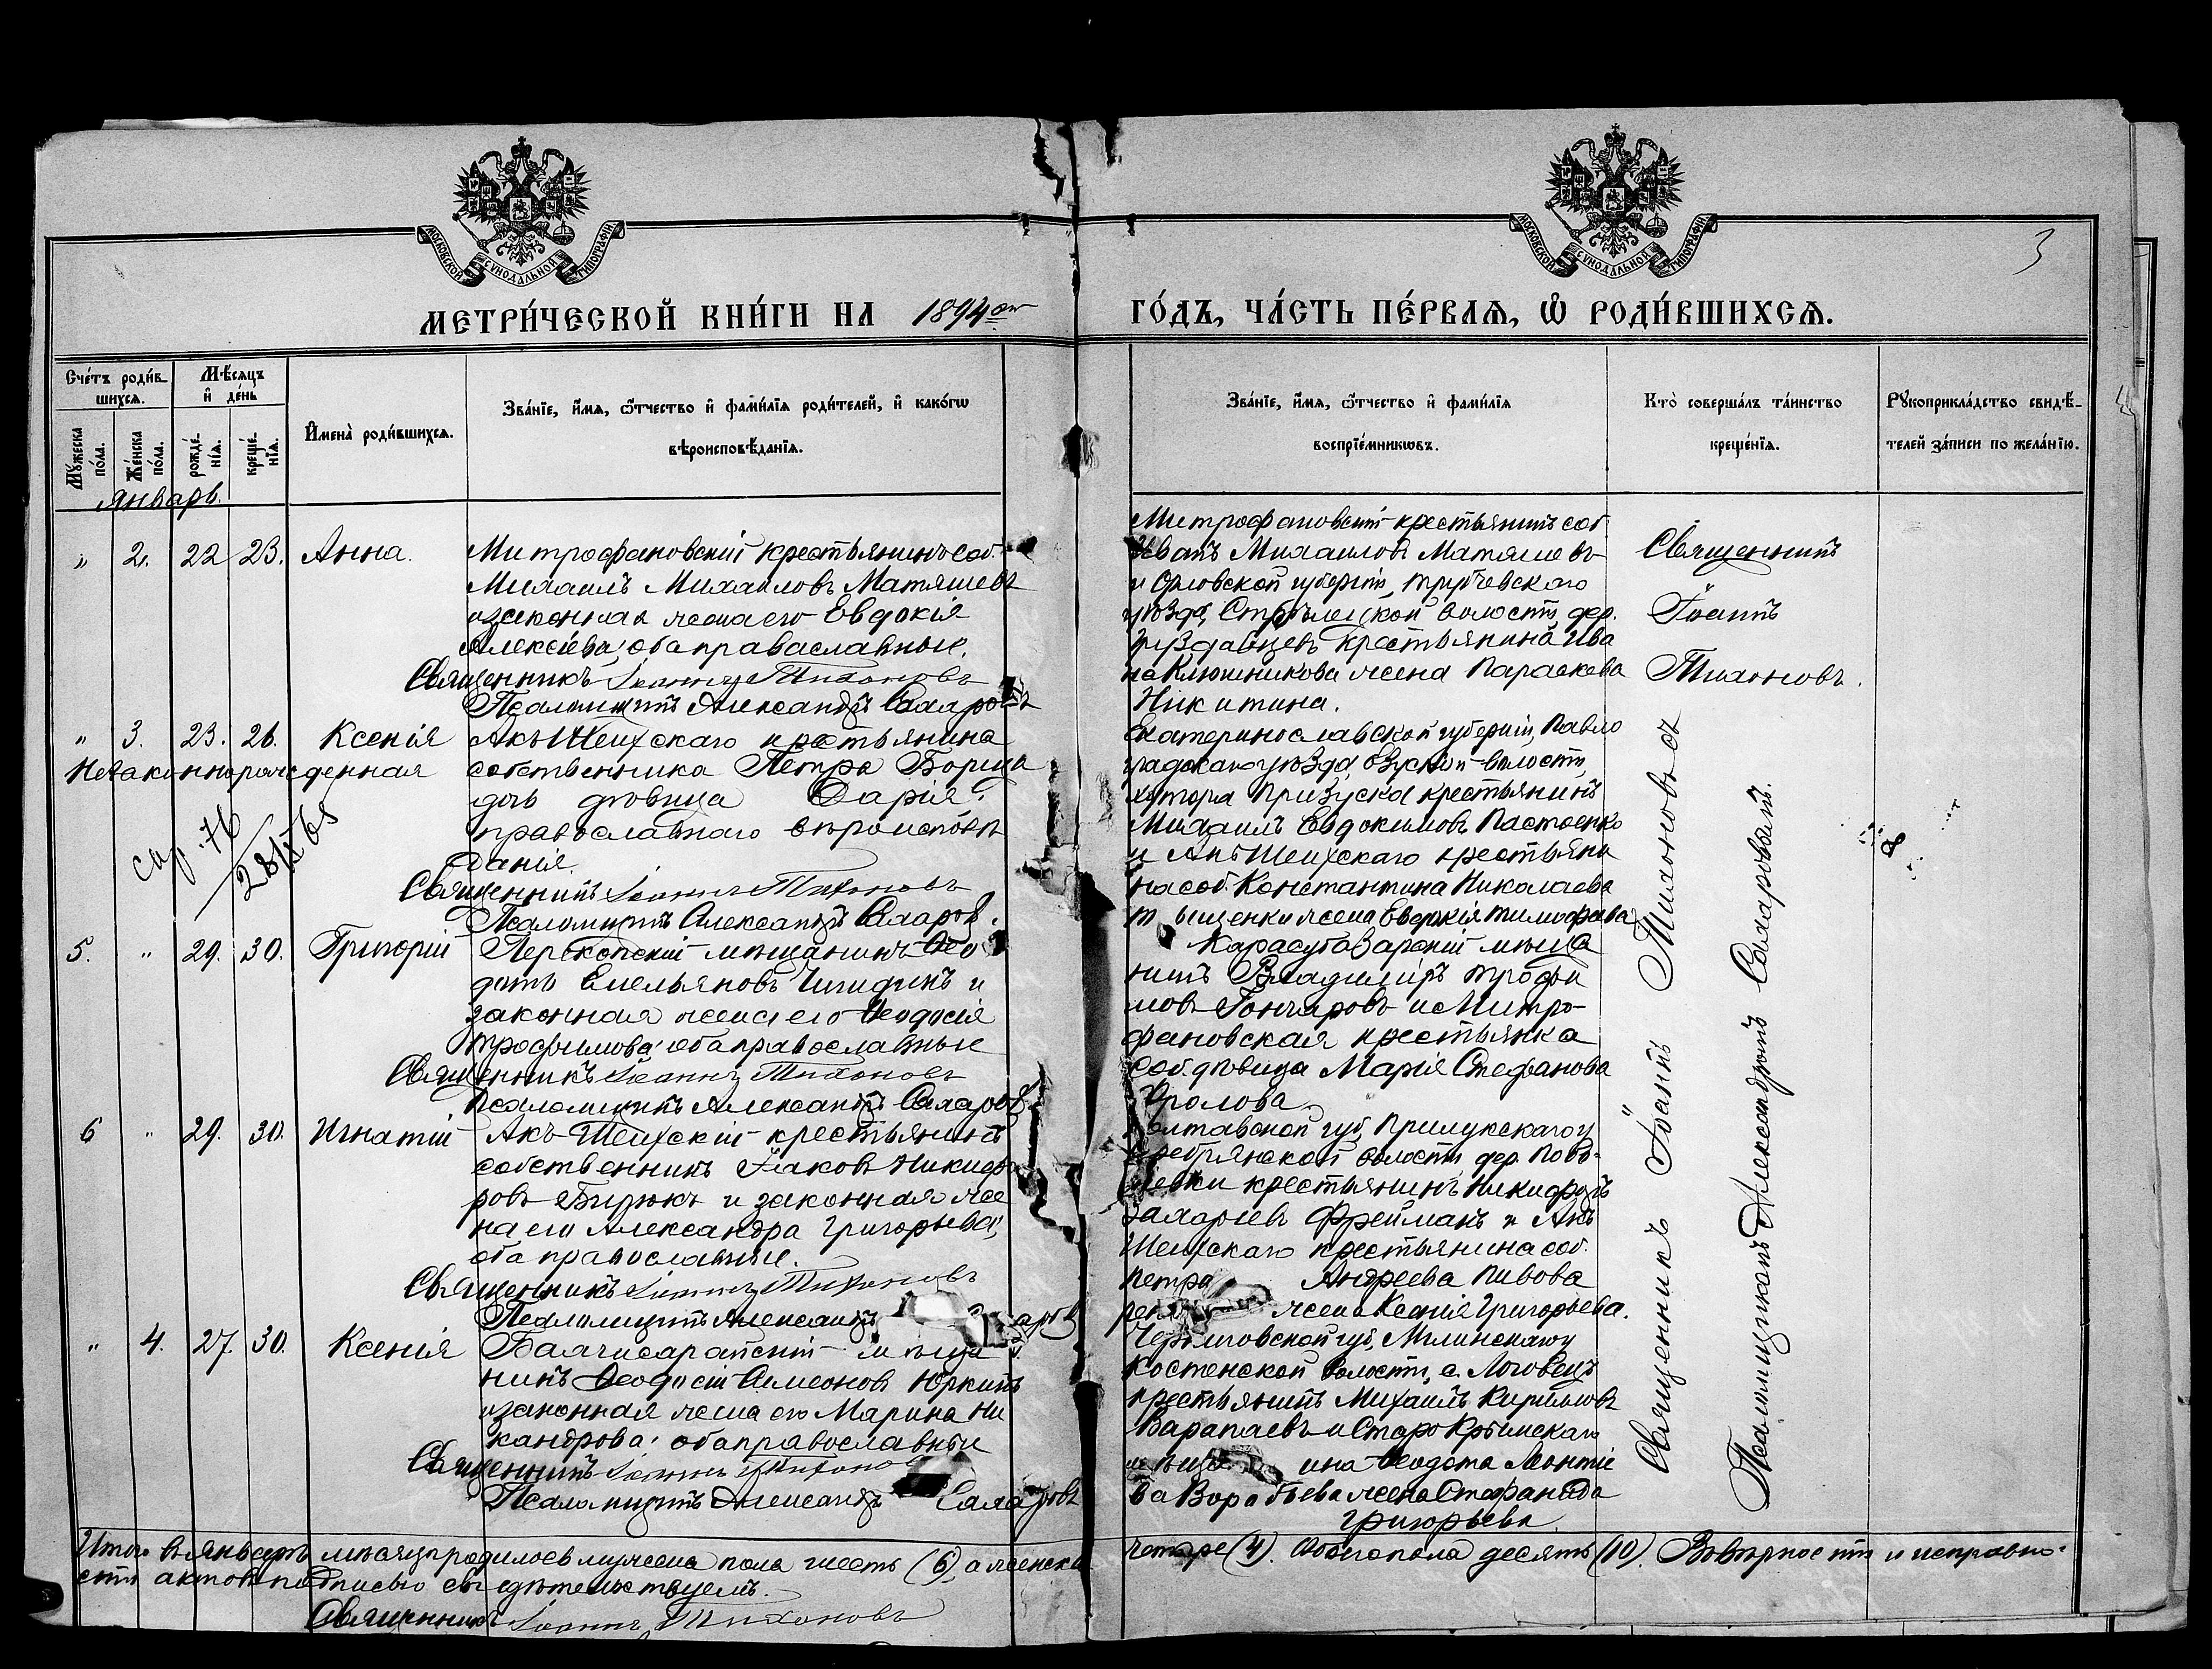 МОСКОВСКОЙ СѴНОДАЛЬНОЙ ТИПОГРАФІИ
МОСКОВСКОЙ СѴНОДАЛЬНОЙ ТИПОГРАФІИ
3
МЕТРИ́ЧЕСКОЙ КНИ́ГИ НА 1894 ГО́ДЪ, ЧА́СТЬ ПЕ́РВАѦ, Ѡ РОДИ́ВШИХСѦ.
Сче́тъ роди́в-
шихсѧ.
Мꙋ́жеска по́ла.
Же́нска по́ла.
Мѣ́сѧцъ
и҆ де́нь
рожде́-
нїѧ.
креще́-
нїѧ.
И҆мена̀ роди́вшихсѧ.
Зва́нїе, и҆́мѧ, ѻ҆́тчество и҆ фамилїѧ роди́телей, и҆ како́гѡ
вѣроисповѣ́данїѧ.
Зва́нїе, и҆́мѧ, ѻ҆́тчество и҆ фами́лїѧ
воспрїе́мникѡвъ.
Кто̀ соверша́лъ та́инство
креще́нїѧ.
Рꙋкоприкла́дство свидѣ́-
телей за́писи по жела́нїю.
Январь.
" 2. 22 23. Анна.
Митрофановскій крестьянинъ соб.
Михаилъ Михаиловъ Матяшевъ
и законная жена его Евдокія
Алексіева; оба православные.
Священникъ Іоаннъ Тихоновъ
Псаломщикъ Александръ Сахаровъ
Митрофановскій крестьянинъ соб.
Иванъ Михаиловъ Матяшевъ
и Орловской губерніи, Трубчевскаго
уѣзда, волости, дер.
крестьянина Ива
на Ключникова жена Параскева
Никитина.
Священникъ
Іоаннъ
Тихоновъ.
" 3. 23. 26. Ксенія
Незаконнорожденная
Акъ Шеихскаго крестьянина
собственника Петра Борща
дочь дѣвица Дарія;
православнаго вѣроисповѣ
данія.
Священникъ Іоаннъ Тихоновъ
Псаломщикъ Александръ Сахаровъ.
Екатеринославской губерніи, Павло
градскаго уѣзда, волости,
хутора крестьянинъ
Михаилъ Евдокимовъ
и Акъ Шеихскаго крестьяни
на соб. Константина Николаева
жена Евдокія Тимофѣева
5. " 29. 30. Григорій
Перекопскій мѣщанинъ Ѳео
дотъ Емельяновъ и
законная жена его Ѳеодосія
Трофимова; оба православные
Священникъ Іоаннъ Тихоновъ
Псаломщикъ Александръ Сахаровъ
Карасубазарскій мѣща
нинъ Владиміръ Трофи
мовъ Гончаровъ и Митро-
фановская крестьянка
соб. дѣвица Марія Стефанова
Фролова.
6 " 29. 30. Игнатій
Акъ-Шеихскій крестьянинъ
собственникъ Іаковъ Никифо
ровъ Бирюкъ и законная же
на его Александра Григорьева;
оба православные.
Священникъ Іоаннъ Тихоновъ
Псаломщикъ Александръ
Полтавской губ, Прилукскаго у
волости дер.
крестьянинъ Никифоръ
Захаріевъ Фрейманъ и Акъ
Шеихскаго крестьянина соб.
Петра Андреева Пивова
жена Ксенія Григорьева.
" 4. 27. 30. Ксенія
Бахчисарайскій мѣща
нинъ Ѳеодосій Симеоновъ Юркинъ
и законная жена его Марина Ни
кандрова; оба православные
Священникъ Іоаннъ Тихоновъ
Псаломщикъ Александръ Сахаровъ
Черниговской губ, Мглинскаго у
Костенской волости, с.
крестьянинъ Михаилъ Кириловъ
и Старо Крымскаго
Ѳеодота Леонтіе
ва Воробьева жена Стефанида
Григорьева.
Священникъ Іоаннъ Тихоновъ съ
Псаломщикомъ Александромъ Сахаровымъ.
Итого въ Январѣ мѣсяцѣ родилось мужеска пола шесть (6), а женска четыре (4). Обоего пола десять (10). Въ вѣрности и исправно-
сти актовъ подписью свидѣтельствуемъ.
Священникъ Іоаннъ Тихоновъ